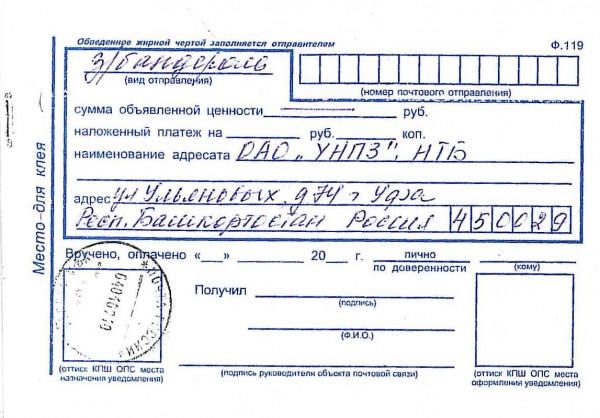 Обведенное жирной чертой заполняется отправителем
Ф.119
з/бандероль
(вид отправления)
(номер почтового отправления)
сумма объявленной ценности руб.
наложенный платеж на руб. коп.
наименование адресата ОАО „УНПЗ", НТБ
адрес ул Ульяновых, д 74 г Уфа
Респ. Башкортостан Россия 450029
Место для клея
Вручено, оплачено «__» 20 г. лично
по доверенности (кому)
Получил
(подпись)
(Ф.И.О.)
ПОЧТА РОССИИ
(оттиск КПШ ОПС места
назначения уведомления)
(подпись руководителя объекта почтовой связи)
(оттиск КПШ ОПС места
оформления уведомления)